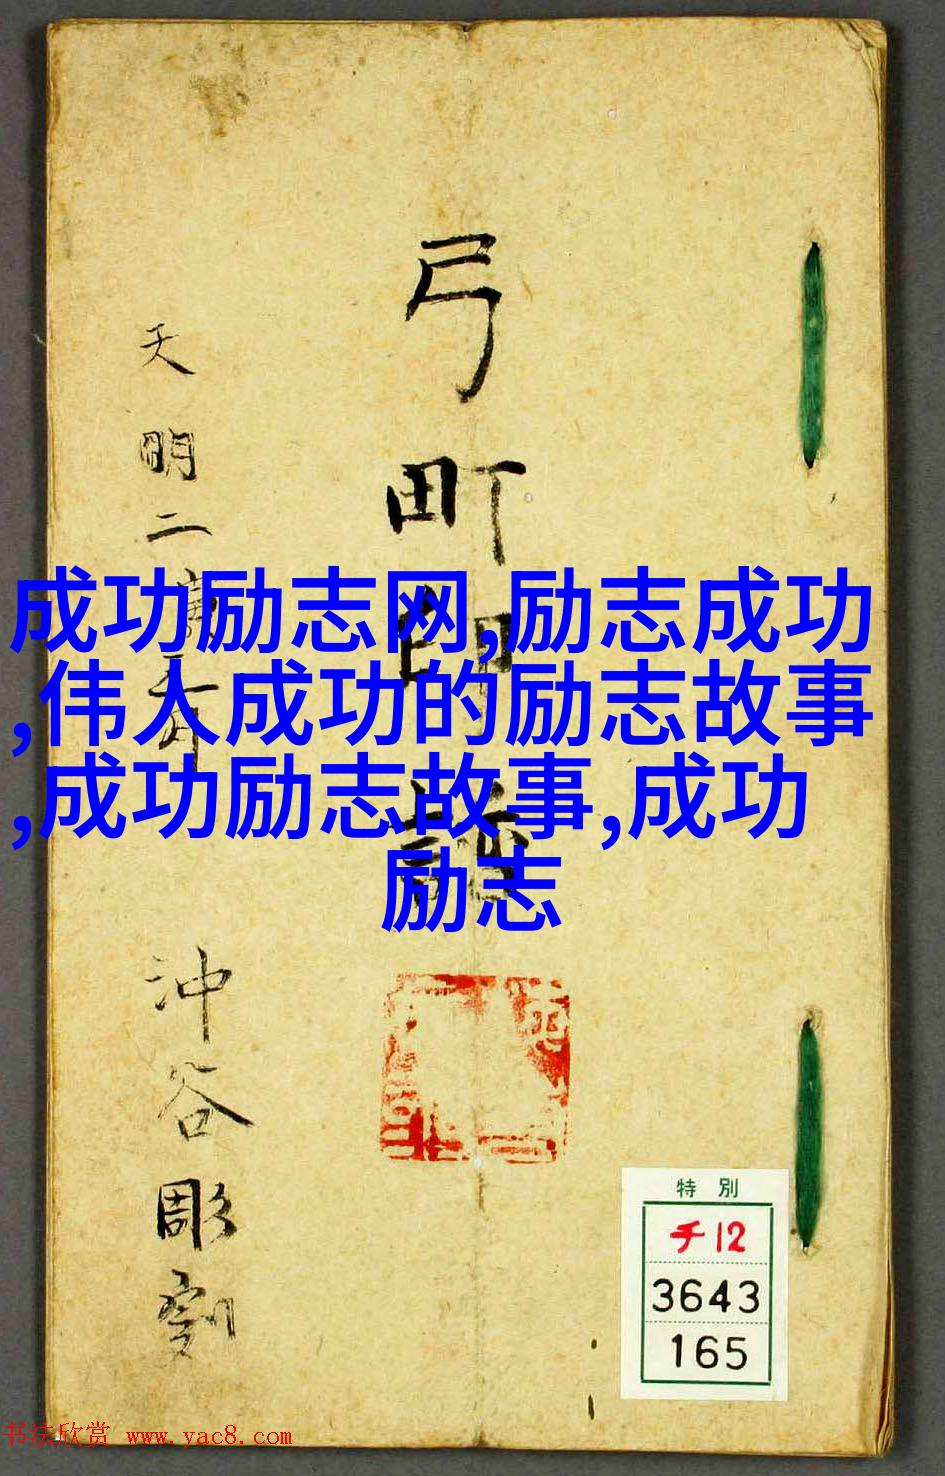 弓町印譜
天明二
沖谷彫刻
成功励志网,励志成功
,伟人成功的励志故事
,成功励志故事,成功
励志
特別
チ12
3643
165
书法欣赏 www.yac8.com